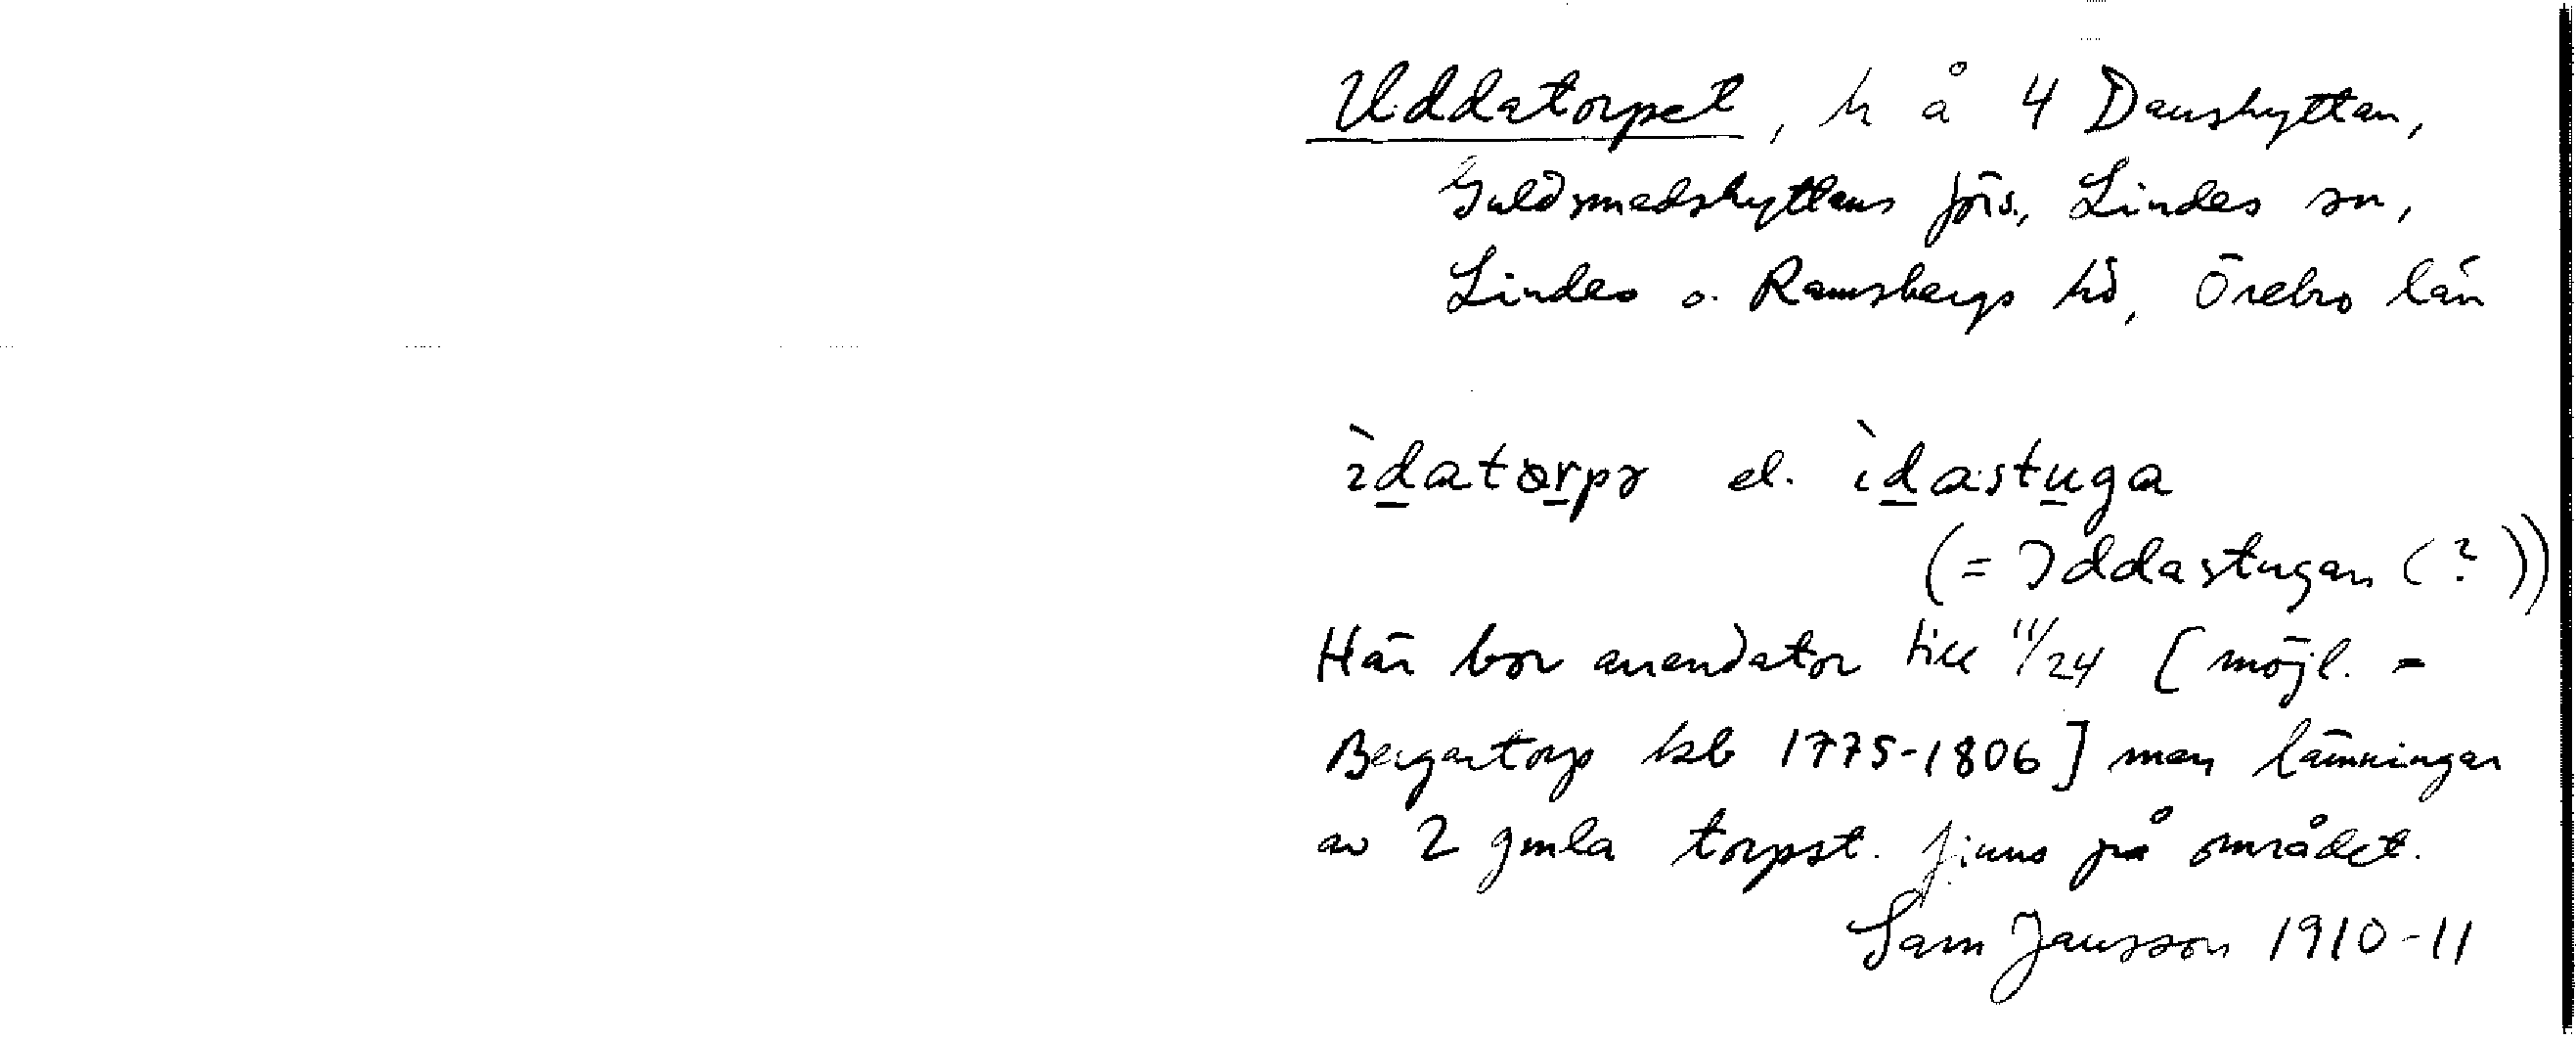 Uddatorpet, h å 4 Danshyttan,
Guldsmedshyttans jbrs., Lindes sn,
Lindes o. Ramsbergs hd, Örebro län
ìdatɔrpə el. ìdastuga
(= Iddastugan (?))
Här bor arrendator till 11/24 [möjl. =
Bergartorp kb 1775-1806] men lämningar
av 2 gmla torpst. finns på området.
Sam Jansson 1910-11